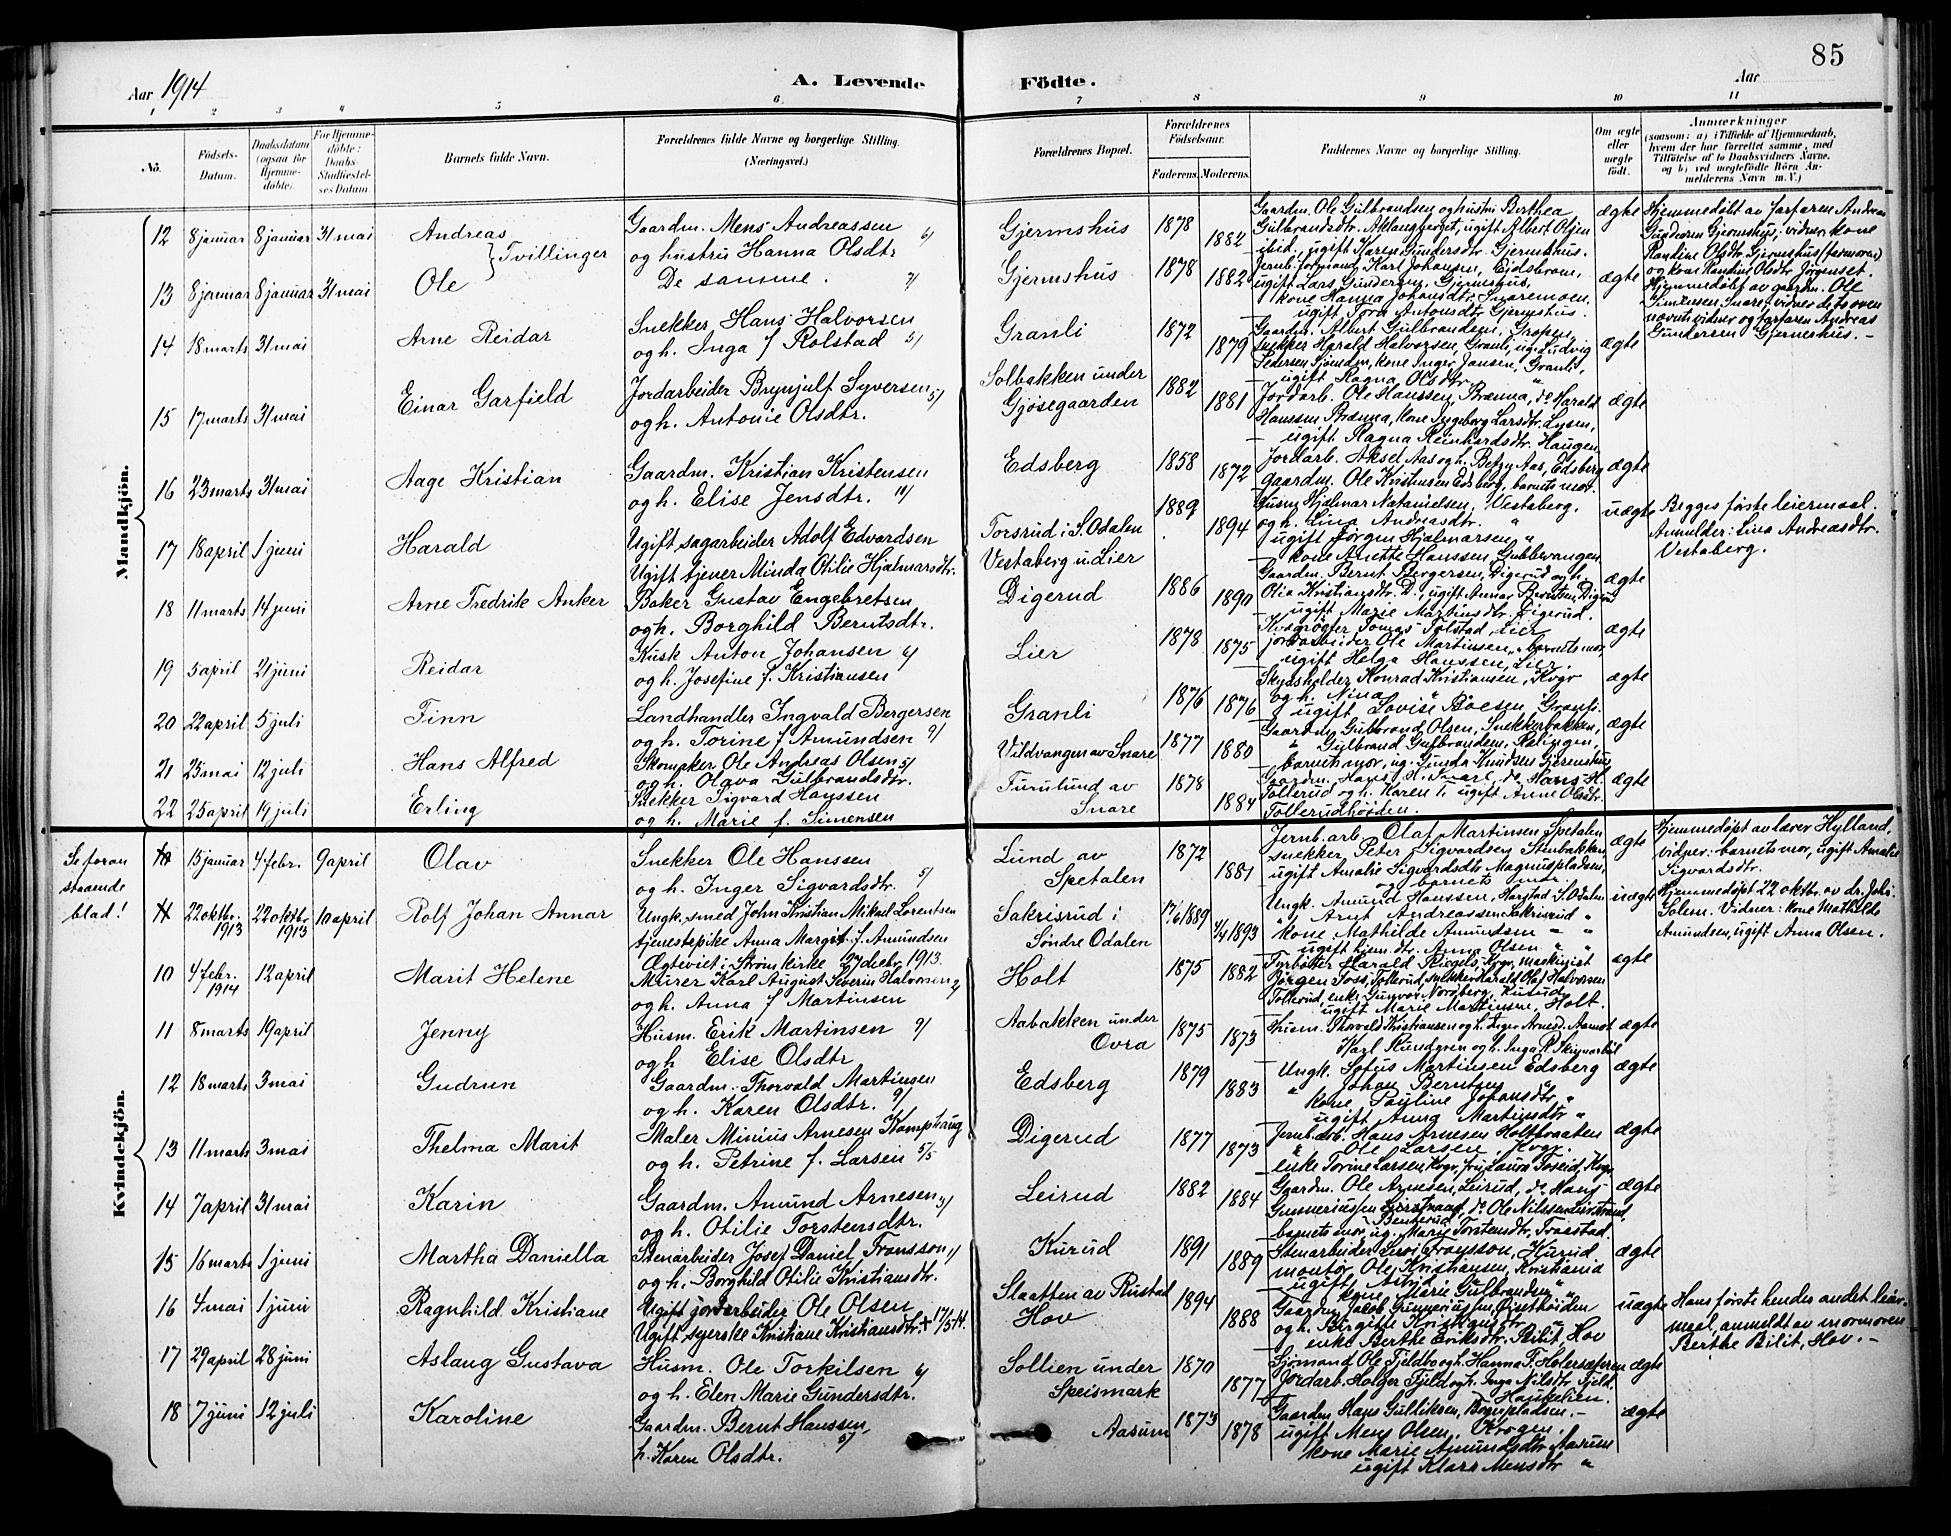 85
Aar 1914
A. Levende
Födte.
Aar
1 2 3 4 5 6 7 8 9 10 11
No.
Födsels-Datum.
Daabsdatum (ogsaa for Hjemmedöbte).
For Hjemmedöbte: Daabs-Stadfæstelses Datum.
Barnets fulde Navn.
Forældrenes fulde Navne og borgerlige Stilling. (Næringsvei.)
Forældrenes Bopæl.
Forældrenes Födselsaar.
Faderens. Moderens.
Faddernes Navne og borgerlige Stilling.
Om ægte eller uægte födt.
Anmærkninger
(saasom: a) i Tilfælde af Hjemmedaab,
hvem der har forrettet samme, med
Tilföielse af to Daabsvidners Navne.
og b) ved uegtefödte Börn An-
melderens Navn m. V.)
Mandkjön.
12 8 januar 8 januar 31 mai Andreas } Tvillinger Gaardm. Mens Andreassen og hustru Hanna Olsdtr Gjermshus 1878 1882 Gaardm. Ole Gulbrandsen og hustru Berthea ægte Hjemmedøbt av farfaren Andreas
13 8 januar 8 januar 31 mai Ole De samme. Gjermshus 1878 1882 ægte
14 18 marts 31 mai Arne Reidar Snekker Hans Halvorsen og h. Inga f Rolstad 5/ Granli 1872 1879 Gaardm. Albert Gulbrandsen, ægte
15 17 marts 31 mai Einar Garfield Jordarbeider Brynjulf Syversen og h. Antonie Olsdtr. 5/ Solbakken under Gjøsegaarden 1882 1881 Jordarb. Ole Hanssen, Brænna, do Harald Hanssen Brænna, kone Ingeborg Larsdtr. Lysen, ugift Ragna Reinhardsdtr. Haugen ægte
16 23 marts 31 mai Aage Kristian Gaardm. Kristian Kristensen og h. Elise Jensdtr. Edsberg 1858 1872 Jordarb. Aksel Aas og h. Betzy Aas, Edsberg gaardm. Ole Kristensen Edsberg, barnets mor. ægte
17 18 april 1 juni Harald Ugift sagarbeider Adolf Edvardsen Ugift tjener Minda Otilie Hjalmarsdtr. Torsrud i S. Odalen Vestaberg u. Lier 1889 1894 Husm Hjalmar Natanielsen, Vestaberg. og h. Lina Andreasdtr. " ugift Jørgen Hjalmarsen " kone Anette Hanssen Gubberangen uægte Begges første leiermaal. Anmelder: Lina Andreasdtr. Vestaberg.
18 11 marts 14 juni Arne Fredrik Anker Baker Gustav Engebretsen og h. Borghild Berntsdtr. Digerud 1886 1890 Gaardm. Bernt Bergersen, Digerud og h. Olia Kristiansdtr. D., ugift Annar Berntsen, Digerud ugift Marie Martinsdtr. Digerud. ægte
19 5 april 21 juni Reidar Kusk Anton Johansen og h. Josefine f. Kristiansen Lier 1878 1875 Kvægrøgter Tomas Tolstad, Lier jordarbeider Ole Martinsen, " barnets mor, ugift Helga Hanssen, Lier. ægte
20 22 april 5 juli Finn Landhandler Ingvald Bergersen og h. Torine f Amundsen 9/ Granli 1876 1876 Skydsholder Konrad Kristiansen, Kvgr og h. Nina " ugift Lovise Boesen, Granli. ægte
21 25 mai 12 juli Hans Alfred Skomaker Ole Andreas Olsen 5/ og h. Olava Gulbrandsdtr. Vildvangen av Snare 1877 1880 Gaardm Gulbrand Olsen, Snekkerbakken, " Gulbrand Gulbrandsen, barnets mor, ug. Gunda Knudsen Gjermshus ægte
22 25 april 19 juli Erling Snekker Sigvard Hanssen og h. Marie f. Simensen Furulund av Snare 1878 1884 Gaardm. Hans H. Snare, do Hans H. Tollerud og h. Karen T. ugift Anne Olsdtr. Tollerudhøiden. ægte
Se foran staaende blad!
15 januar 4 febr. 9 april Olav Snekker Ole Hanssen og h. Inger Sigvardsdtr. 5/ Lund av Spetalen 1872 1881 Jernb. arb. Olaf Martinsen Spetalen snekker Peter Sigvardsen Stenbakken, ugift Amalie Sigvardsdtr Magnuspladsen, og barnets mor. ægte Hjemmedøpt av lærer Hylland, vidner: barnets mor, ugift Amalie Sigvardsdtr.
11 22 oktbr. 1913 22 oktbr 1913 10 april Rolf Johan Annar Ungk. smed John Kristian Mikael Lorentsen tjenestepike Anna Margit f. Amundsen Ægteviet i Strøm kirke 27 decbr. 1913. Sakrisrud i Søndre Odalen 17/6 1889 4/4 1893 Ungk. Amund Hanssen, Harstad S. Odalen " Arnt Andreassen Sakrisrud " kone Mathilde Amundsen " " ugift hjem. dtr. Anna Olsen " " uægte Hjemmedøpt 22 oktbr. av dr. Johs. Solem. Vidner: kone Mathilde Amundsen, ugift Anna Olsen.
Kvindekjön.
10 4 febr. 1914 12 april Marit Helene Murer Karl August Severin Halvorsen og h. Anna f Martinsen Holt 1875 1882 Fyrbøter Harald Riegels, Kvgr, maskinist Jørgen Foss, Tollerud, snekker Harald Olaf Halvorsen Tollerud, enke Gunvor Nordberg, Kurud ugift Marie Martinsen, Holt. ægte
11 8 marts 19 april Jenny Husm. Erik Martinsen 9/ og h Elise Olsdtr Aabakken under Ovra 1875 1873 Husm. Thorvald Kristiansen og h. Inger Arnesd. Aamot Karl Rundgren og h. Inga R. ægte
12 18 marts 3 mai Gudrun Gaardm. Thorvald Martinsen og h. Karen Olsdtr. 9/ Edsberg 1879 1883 Ungk. Lotus Martinsen Edsberg " Johan Berntsen " kone Pauline Johansdtr. " ugift Anna Martinsdtr " ægte
13 11 marts 3 mai Thelma Marit Maler Minius Arnesen Kamphaug og h. Petrine f. Larsen 5/5 Digerud 1877 1873 Jernb. arb. Hans Arnesen Holtbraaten " Ole Larsen, Kvgr. enke Torine Larsen Kvgr, fru Laura Foseid, Kvgr ægte
14 7 april 31 mai Karin Gaardm. Amund Arnesen og h. Otilie Torstensdtr. Leirud 1882 1884 Gaardm. Ole Arnesen, Leirud, do Hans Gunneriussen do Ole Nilssen barnets mor, ug. Marie Torstensdtr. Fraastad. ægte
15 16 marts 1 juni Martha Daniella Stenarbeider Josef Daniel Fransson og h. Borghild Otilie Kristiansdtr. Kurud 1891 1889 Stenarbeider Fransson, Kurud montør Ole Kristiansen, Kristiania ugift Astrid " kone Marie Gulbrandsen " ægte
16 4 mai 1 juni Ragnhild Kristiane Ugift jordarbeider Ole Olsen Ugift syerske Kristiane Kristiansdtr. + 17/5 14. Slaatten av Rustad Hov 1894 1888 Gaardm Jacob Gunneriussen Lisethøiden og h. Birgitte Kristiansdtr. enke Berthe Eriksdtr. Bilit, Hov uægte Hans første hendes andet leiermaal, anmeldt av mormoren Berthe Bilit, Hov. –
17 29 april 28 juni Aslaug Gustava Husm. Ole Torkilsen og h. Elen Marie Gundersdtr. Sollien under Speismark 1870 1877 Sjømand Ole Fjeldbo og h. Hanna F. Holersæteren Jordarb. Holger Fjeld og h. Inga Nilsdtr Fjeld, Haukelien. ægte
18 7 juni 12 juli Karoline Gaardm. Bernt Hanssen, h. Karen Olsdtr. 5/ Aasum 1873 1878 Gaardm Hans Gulliksen, Bøgerpladsen. – ugift Mens Olsen, Krogen. kone Marie Amundsdtr Aasum ugift Klara Mensdtr " ægte